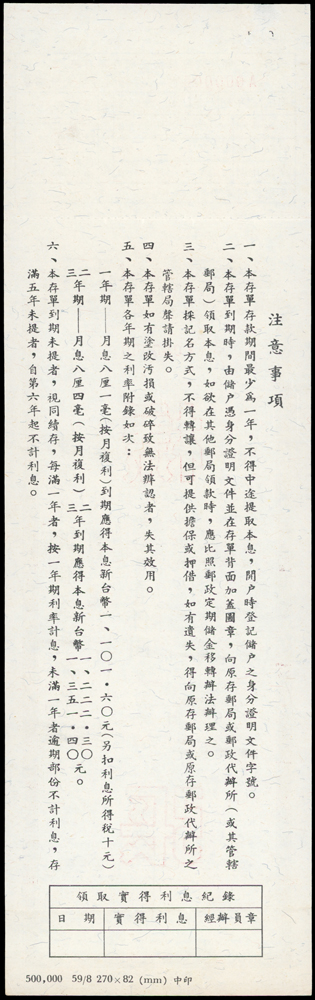 注意事項
一、本存單存款期間最少為一年，不得中途提取本息，開戶時登記儲戶之身分證明文件字號。
二、本存單到期時，由儲戶憑身分證明文件並在存單背面加蓋圖章，向原存郵局或郵政代辦所（或其管轄
郵局）領取本息，如欲在其他郵局領款時，應比照郵政定期儲金移轉辦法辦理之。
三、本存單採記名方式，不得轉讓，但可提供擔保或押借，如有遺失，得向原存郵局或原存郵政代辦所之
管轄局聲請掛失。
四、本存單如有塗改污損或破碎致無法辨認者，失其效用。
五、本存單各年期之利率附錄如次：
一年期——月息八厘一毫（按月複利）到期應得本息新台幣一、一〇一・六〇元（另扣利息所得稅十元）
二年期——月息八厘四毫（按月複利）二年到期應得本息新台幣一、二二二・三〇元。
三年期——月息八厘四毫（按月複利）三年到期應得本息新台幣一、三五一・四〇元。
六、本存單到期未提者，視同續存，每滿一年者，按一年期利率計息，未滿一年者逾期部份不計利息，存
滿五年未提者，自第六年起不計利息。
領取實得利息紀錄
日期 實得利息 經辦員章
500,000 59/8 270×82 (mm) 中印